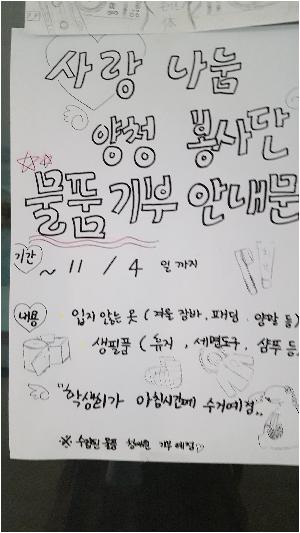 사랑 나눔
양청 봉사단
물품 기부 안내문
기간
~ 11 / 4 일 까지
내용
입지 않는 옷 (겨울 잠바, 패딩, 양말 등)
생필품 (휴지, 세면도구, 샴푸 등
"학생회가 아침시간에 수거예정"
※ 수합된 물품 기부 예정